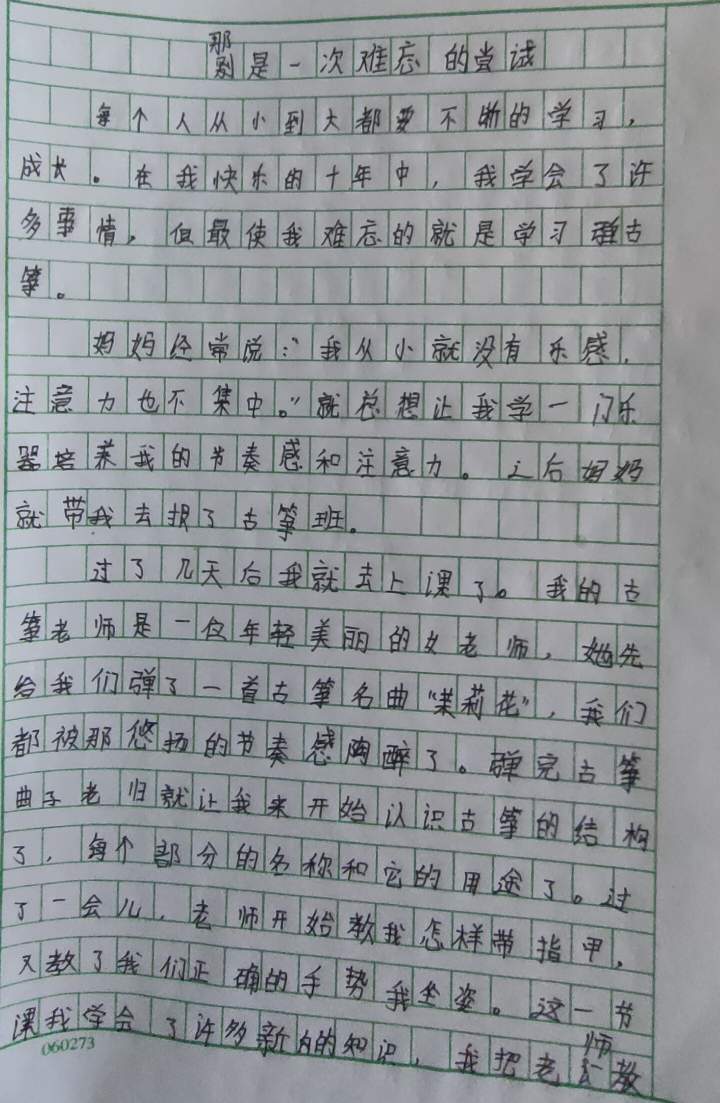 那是一次难忘的尝试
每个人从小到大都要不断的学习，
成长。在我快乐的十年中，我学会了许
多事情，但最使我难忘的就是学习弹古
筝。
妈妈经常说：“我从小就没有乐感，
注意力也不集中。”就总想让我学一门乐
器培养我的节奏感和注意力。之后妈妈
就带我去报了古筝班。
过了几天后我就去上课了。我的古
筝老师是一位年轻美丽的女老师，她先
给我们弹了一首古筝名曲“茉莉花”，我们
都被那悠扬的节奏感陶醉了。弹完古筝
曲子老师就让我来开始认识古筝的结构
了，每个部分的名称和它的用途了。过
了一会儿，老师开始教我怎样带指甲，
又教了我们正确的手势我坐姿。这一节
课我学会了许多新的知识，我把老师教
060273